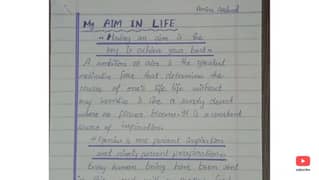 Amina Arshad
My AIM IN LIFE
"Having an aim is the
key to achieve your best"
A ambition or aim is the greatest
motivative force that determine the
course of one's life. life without
any is like a sandy desert
where no flower blooms. It is a constant
source of inspiration.
"Genius is one percent inspiration
and ninety percent
Every human being have been sent
in this
subscribe